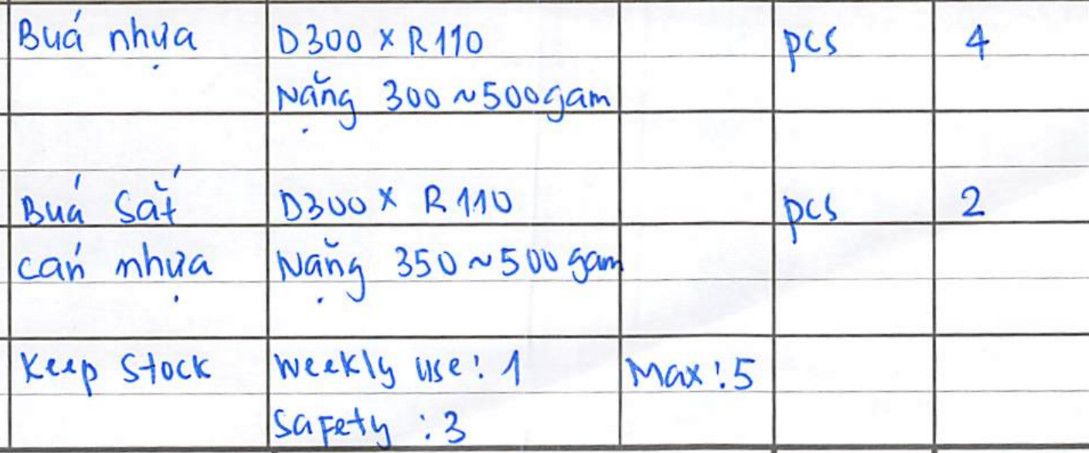 Búa nhựa D300 x R110 pcs 4
Nặng 300 ~ 500gam
Búa sắt D300 x R110 pcs 2
cán nhựa Nặng 350 ~ 500 gam
Keep Stock Weekly use: 1 Max: 5
Safety : 3